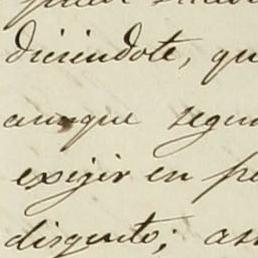 diciendote, qu
aunque segu
exijir en pe
disgusto; as